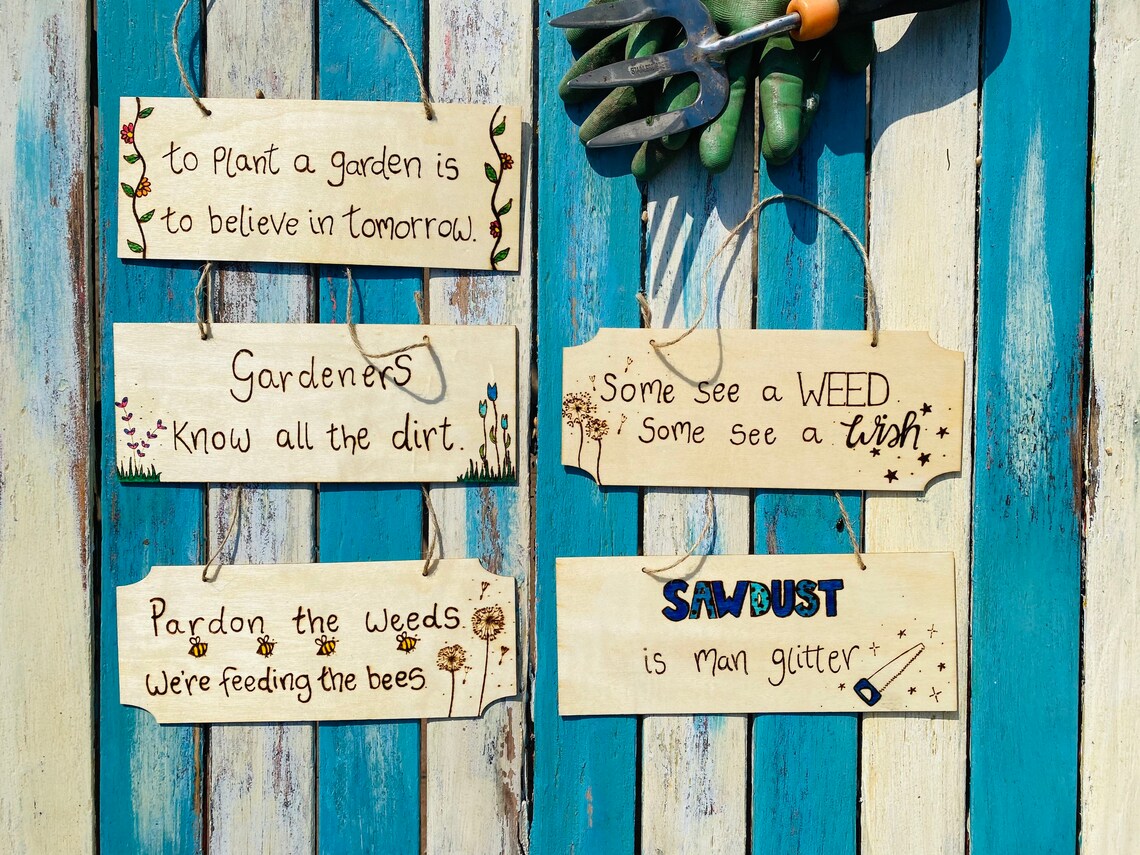 to Plant a garden is
to believe in tomorrow.
Gardeners
Know all the dirt.
Pardon the weeds
We're feeding the bees
Some see a WEED
Some see a wish
SAWDUST
is man glitter